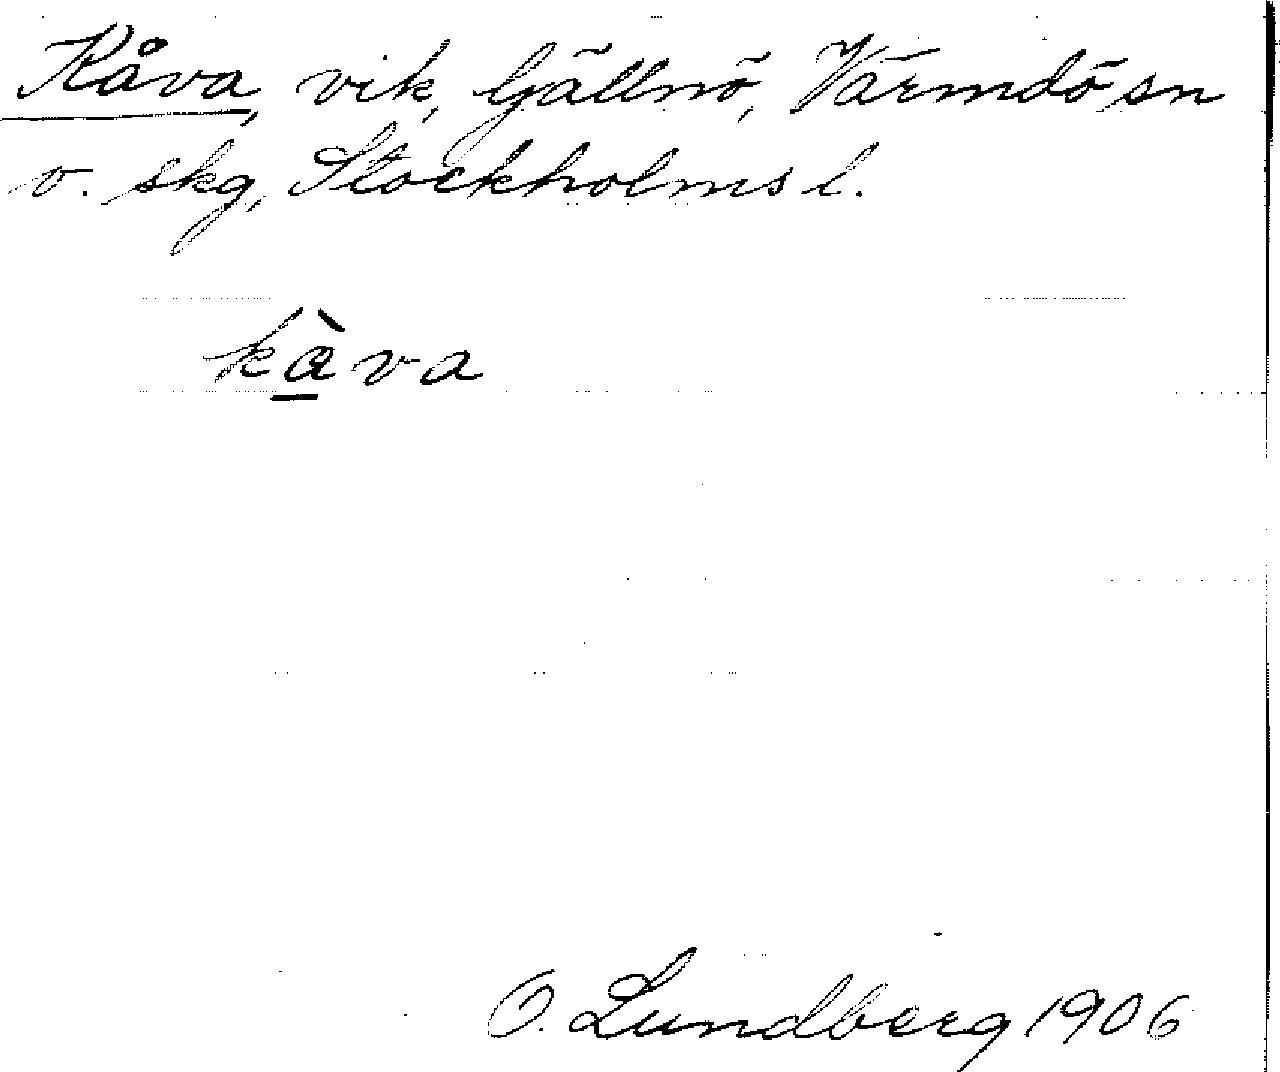 Kåva, vik, Gällnö, Värmdö sn
o. skg, Stockholms l.
kàva
O. Lundberg 1906